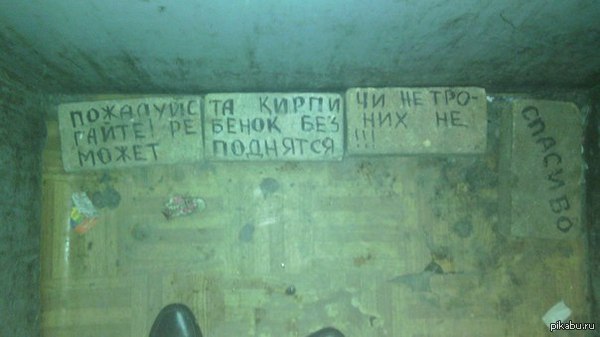 ПОЖАЛУЙС ТА КИРПИ ЧИ НЕ ТРО-
ГАЙТЕ! РЕ БЕНОК БЕЗ НИХ НЕ
МОЖЕТ ПОДНЯТСЯ !!!
СПАСИБО
pikabu.ru